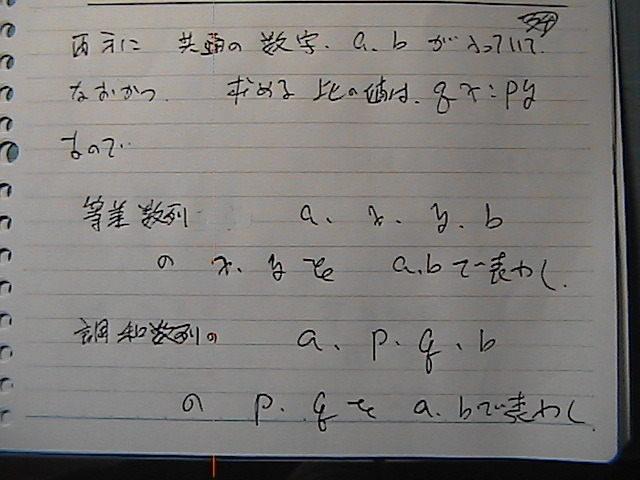 両方に 共通の 数字、a、b が 入っていて、
なおかつ、 求める 比の値は、qx:py
なので
等差数列 a、x、y、b
の x、yを a、bで表わし、
調和数列の a、p、q、b
の p、qを a、bで表わし、